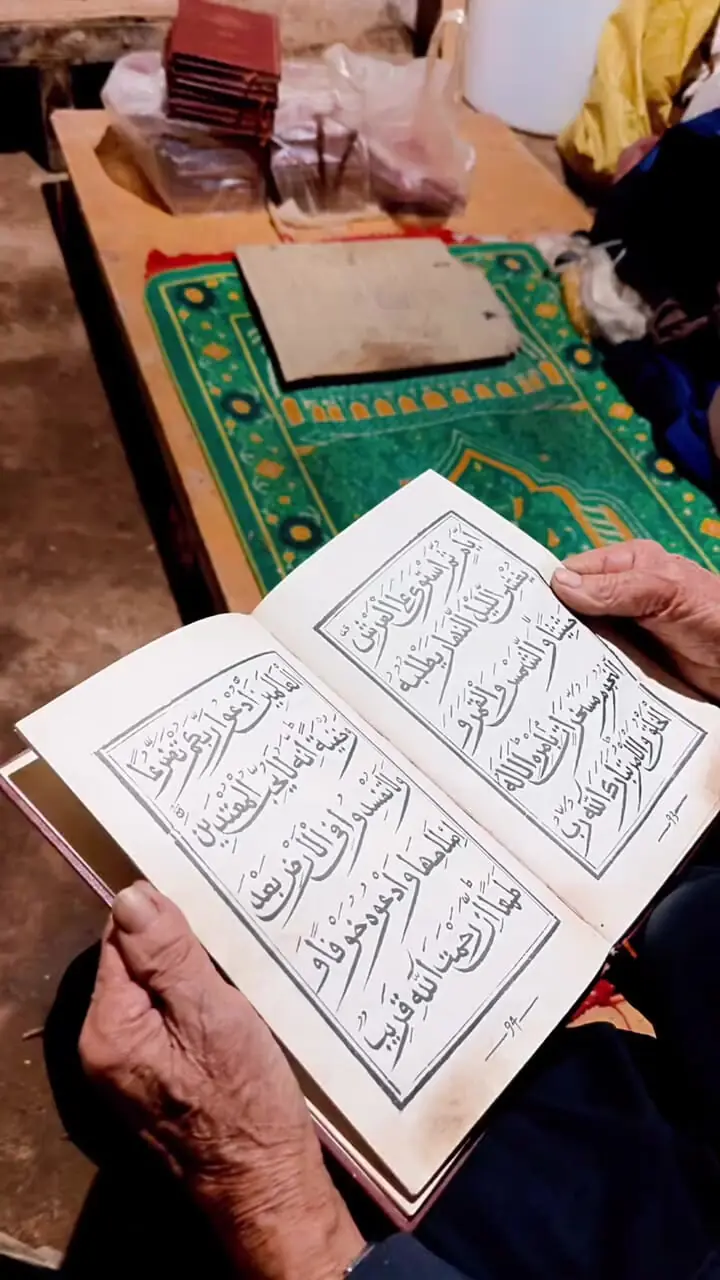 أَيَّامٍ ثُمَّ اسْتَوَىٰ عَلَى الْعَرْشِ
يُغْشِى الَّيْلَ النَّهَارَ يَطْلُبُهُ
حَثِيثًا وَّالشَّمْسَ وَالْقَمَرَ وَ
النُّجُومَ مُسَخَّرَاتٍ بِأَمْرِهِ أَلَا لَهُ
الْخَلْقُ وَالْأَمْرُ تَبَارَكَ اللَّهُ رَبُّ
—۹۳—
الْعَالَمِينَ اُدْعُوا رَبَّكُمْ تَضَرُّعًا
وَّخُفْيَةً إِنَّهُ لَا يُحِبُّ الْمُعْتَدِينَ
وَلَا تُفْسِدُوا فِى الْأَرْضِ بَعْدَ
إِصْلَاحِهَا وَادْعُوهُ خَوْفًا وَّ
طَمَعًا إِنَّ رَحْمَتَ اللَّهِ قَرِيبٌ
—۹۴—